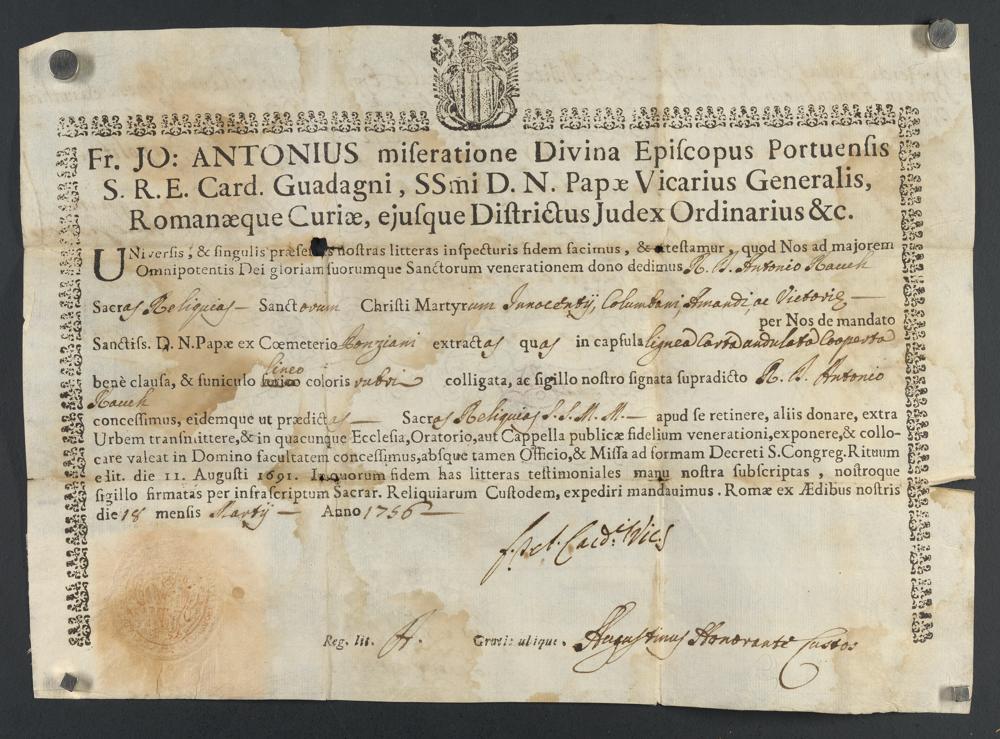 Fr. JO: ANTONIUS miſeratione Divina Epiſcopus Portuenſis
S. R. E. Card. Guadagni, SSm̃i D. N. Papæ Vicarius Generalis,
Romanæque Curiæ, ejuſque Diſtrictus Judex Ordinarius &c.
UNiversis, & ſingulis præſentes noſtras litteras inſpecturis fidem facimus, & atteſtamur, quod Nos ad majorem
Omnipotentis Dei gloriam ſuorumque Sanctorum venerationem dono dedimus R. D. Antonio Rauch
Sacras Reliquias — Sanctorum Chriſti Martyrum Innocentij, Columbani, Amandi, ac Victoriæ —
per Nos de mandato
Sanctiſs. D. N. Papæ ex Cœmeterio Ponziani extractas quas in capſula lignea Carta undulata Cooperta
lineo
benè clauſa, & funiculo ſerico coloris rubri colligata, ac ſigillo noſtro ſignata ſupradicto R. D. Antonio
Rauch
conceſſimus, eidemque ut prædictas — Sacras Reliquias S. S. M. M. — apud ſe retinere, aliis donare, extra
Urbem tranſmittere, & in quacunque Eccleſia, Oratorio, aut Cappella publicæ fidelium venerationi, exponere, & collo-
care valeat in Domino facultatem conceſſimus, absque tamen Officio, & Miſſa ad formam Decreti S. Congreg. Rituum
edit. die 11. Auguſti 1691. In quorum fidem has litteras teſtimoniales manu noſtra ſubſcriptas, noſtroque
ſigillo firmatas per infraſcriptum Sacrar. Reliquiarum Cuſtodem, expediri mandauimus. Romæ ex Ædibus noſtris
die 18 menſis Martij — Anno 1756 —
Card. Vics
Reg. lit. A. Gratis ubique. Augustinus Honorante Custos